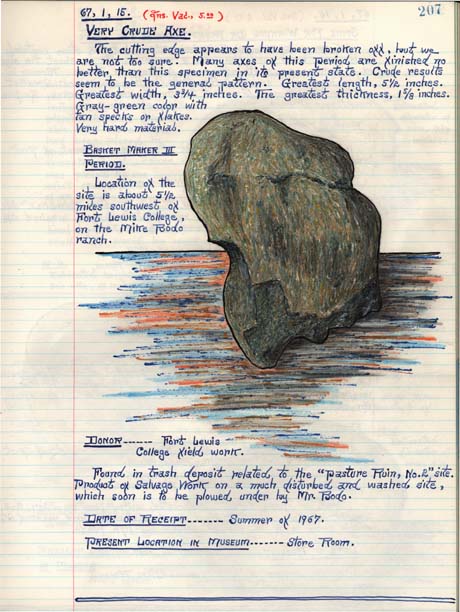 67, 1, 15. (Ins. Val., 5.00)
207
VERY CRUDE AXE.
The cutting edge appears to have been broken off, but we
are not too sure. Many axes of this period are finished no
better than this specimen in its present state. Crude results
seem to be the general pattern. Greatest length, 5½ inches.
Greatest width, 3¾ inches. The greatest thickness, 1⅞ inches.
Gray-green color with
tan specks or flakes.
Very hard material.
BASKET MAKER III
PERIOD.
Location of the
site is about 5½
miles southwest of
Fort Lewis College,
on the Mike Bodo
ranch.
DONOR------ Fort Lewis
College field work.
Found in trash deposit related to the "Pasture Ruin, No. 2" site.
Product of Salvage Work on a much disturbed and washed site,
which soon is to be plowed under by Mr. Bodo.
DATE OF RECEIPT------- Summer of 1967.
PRESENT LOCATION IN MUSEUM------- Store Room.